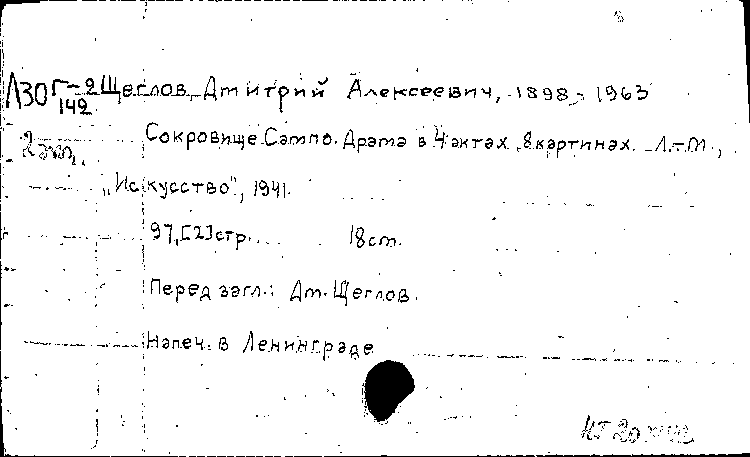 Л30 Г-2 Щеглов, Дмитрий Алексеевич, 1898 - 1963
142
2 экз.
Сокровище Сампо. Драма в 4 актах, 8 картинах. Л.-М.,
„Искусство", 1941.
97,[2] стр. 18 см.
Перед загл.: Дм. Щеглов.
Напеч. в Ленинграде